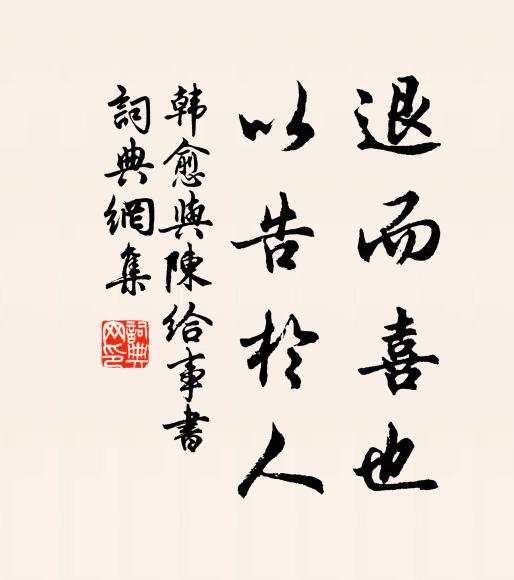 退而喜也
以告於人
韓愈與陳給事書
詞典網集
詞典網印